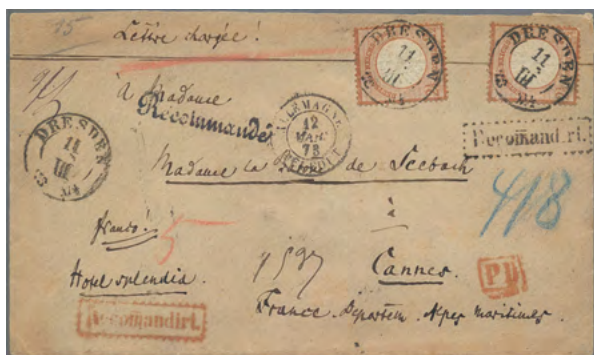 15
Lettre chargée!
DRESDEN 11 III 73
DRESDEN 11 III 73
à Madame
Recommandé
ALLEMAGNE 12 MARS 73
Recomandirt.
DRESDEN 11 III 73
Madame la de Seebach
418
à
franco.
5
Hotel splendid.
Cannes.
PD
Recomandirt.
France. Departem. Alpes Maritimes.